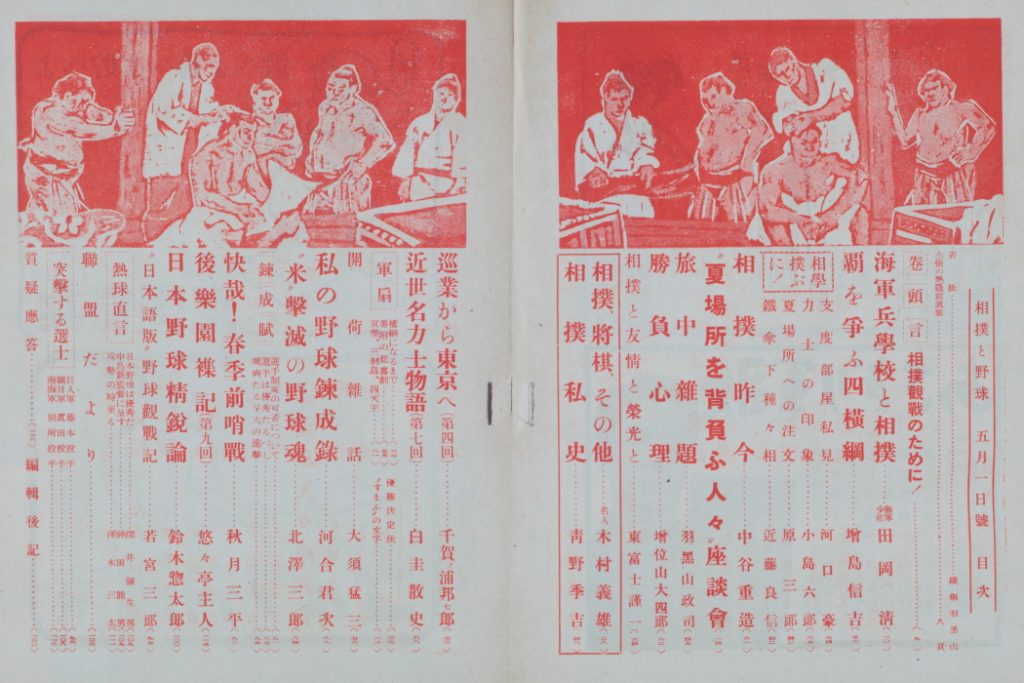 相撲と野球 五月一日號 目次
表紙 横綱 羽黒山
土俵の熱戰寫眞集
卷頭言 相撲觀戰のために!
海軍兵學校と相撲 海軍少佐 田岡 清
覇を爭ふ四横綱 增島信吉
相撲學に!
支度部屋私見 河口 豪
力士の印象 小島六郎
夏場所への注文 原 三郎
鐵傘下種々相 近藤良信
相撲昨今 中谷重造
"夏場所を背負ふ人々"座談會
旅中雜題 羽黑山政司
勝負心理 增位山大四郎
相撲と友情と榮光と 東富士謹一
相撲、將棋、その他 名人 木村義雄
相撲私史 靑野季吉
巡業から東京へ(第四回) 千賀ノ浦邦七郎
近世名力士物語(第七回) 白圭散史
軍扇
横綱になるまで
優勝決定法
"すまふ"の文字
開荷雜話 大須猛三
私の野球鍊成錄 河合君次
"米"擊滅の野球魂 北澤三郎
鍊成賦
快哉!春季前哨戰 秋月三平
後樂園襍記(第九回) 悠々亭主人
日本野球精銳論 鈴木惣太郎
"日本語版"野球觀戰記 若宮三郎
熱球直言
日本野球は優秀だ 深井彌生男
攻勢の時至る 澤木三太
聯盟だより
突擊する選士
巨人軍 藤本投手
朝日軍 眞田投手
南海軍 別所投手
質疑應答
編輯後記